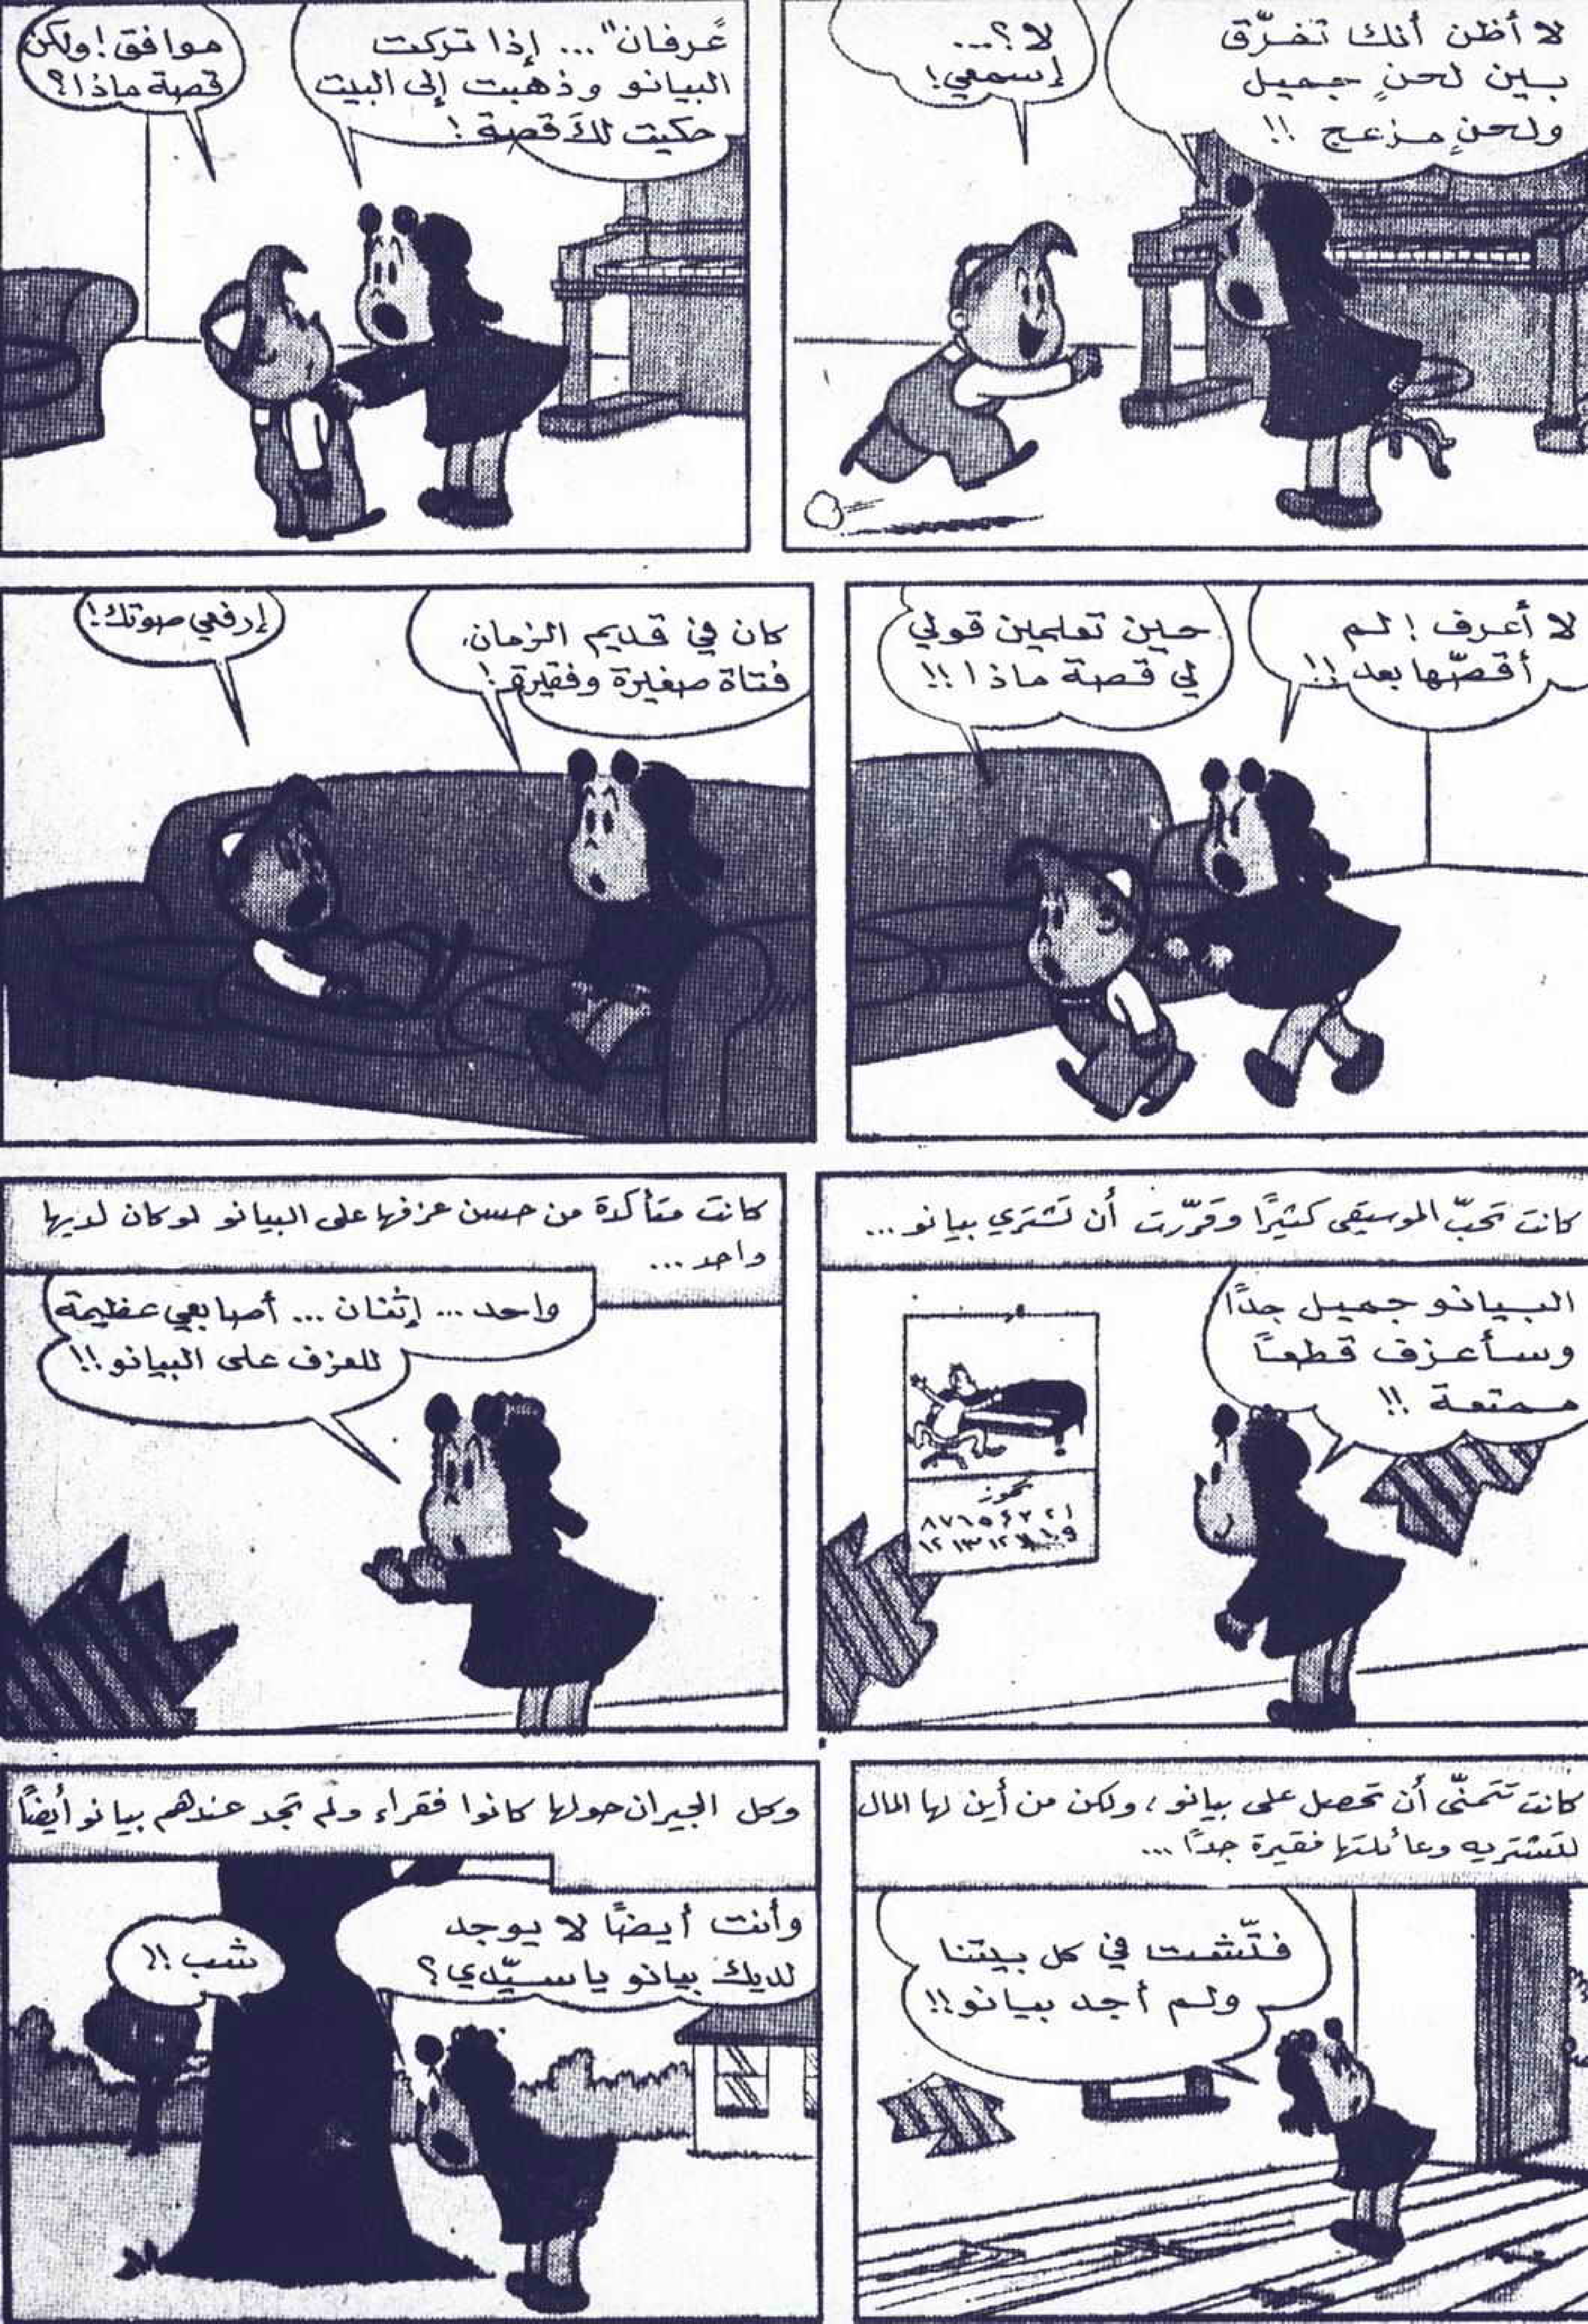 لا أظن أنك تفرّق
بين لحنٍ جميل
ولحنٍ مزعج !!
لا؟...
إسمعي!
"عرفان"... إذا تركت
البيانو وذهبت إلى البيت
حكيت لكَ قصة!
موافق! ولكن
قصة ماذا؟
لا أعرف! لم
أقصّها بعد!!
حين تعلمين قولي
لي قصة ماذا!!
كان في قديم الزمان،
فتاة صغيرة وفقيرة!
إرفعي صوتك!
كانت تحبّ الموسيقى كثيرًا وقرّرت أن تشتري بيانو...
البيانو جميل جدًا
وسأعزف قطعًا
ممتعة !!
تموز
١ ٢ ٣ ٤ ٥ ٦ ٧ ٨
كانت متأكدة من حسن عزفها على البيانو لو كان لديها
واحد...
واحد... إثنان... أصابعي عظيمة
للعزف على البيانو!!
كانت تتمنّى أن تحصل على بيانو، ولكن من أين لها المال
لتشتريه وعائلتها فقيرة جدًا...
فتّشت في كل بيتنا
ولم أجد بيانو!!
وكل الجيران حولها كانوا فقراء ولم تجد عندهم بيانو أيضًا
وأنت أيضًا لا يوجد
لديك بيانو يا سيّدي؟